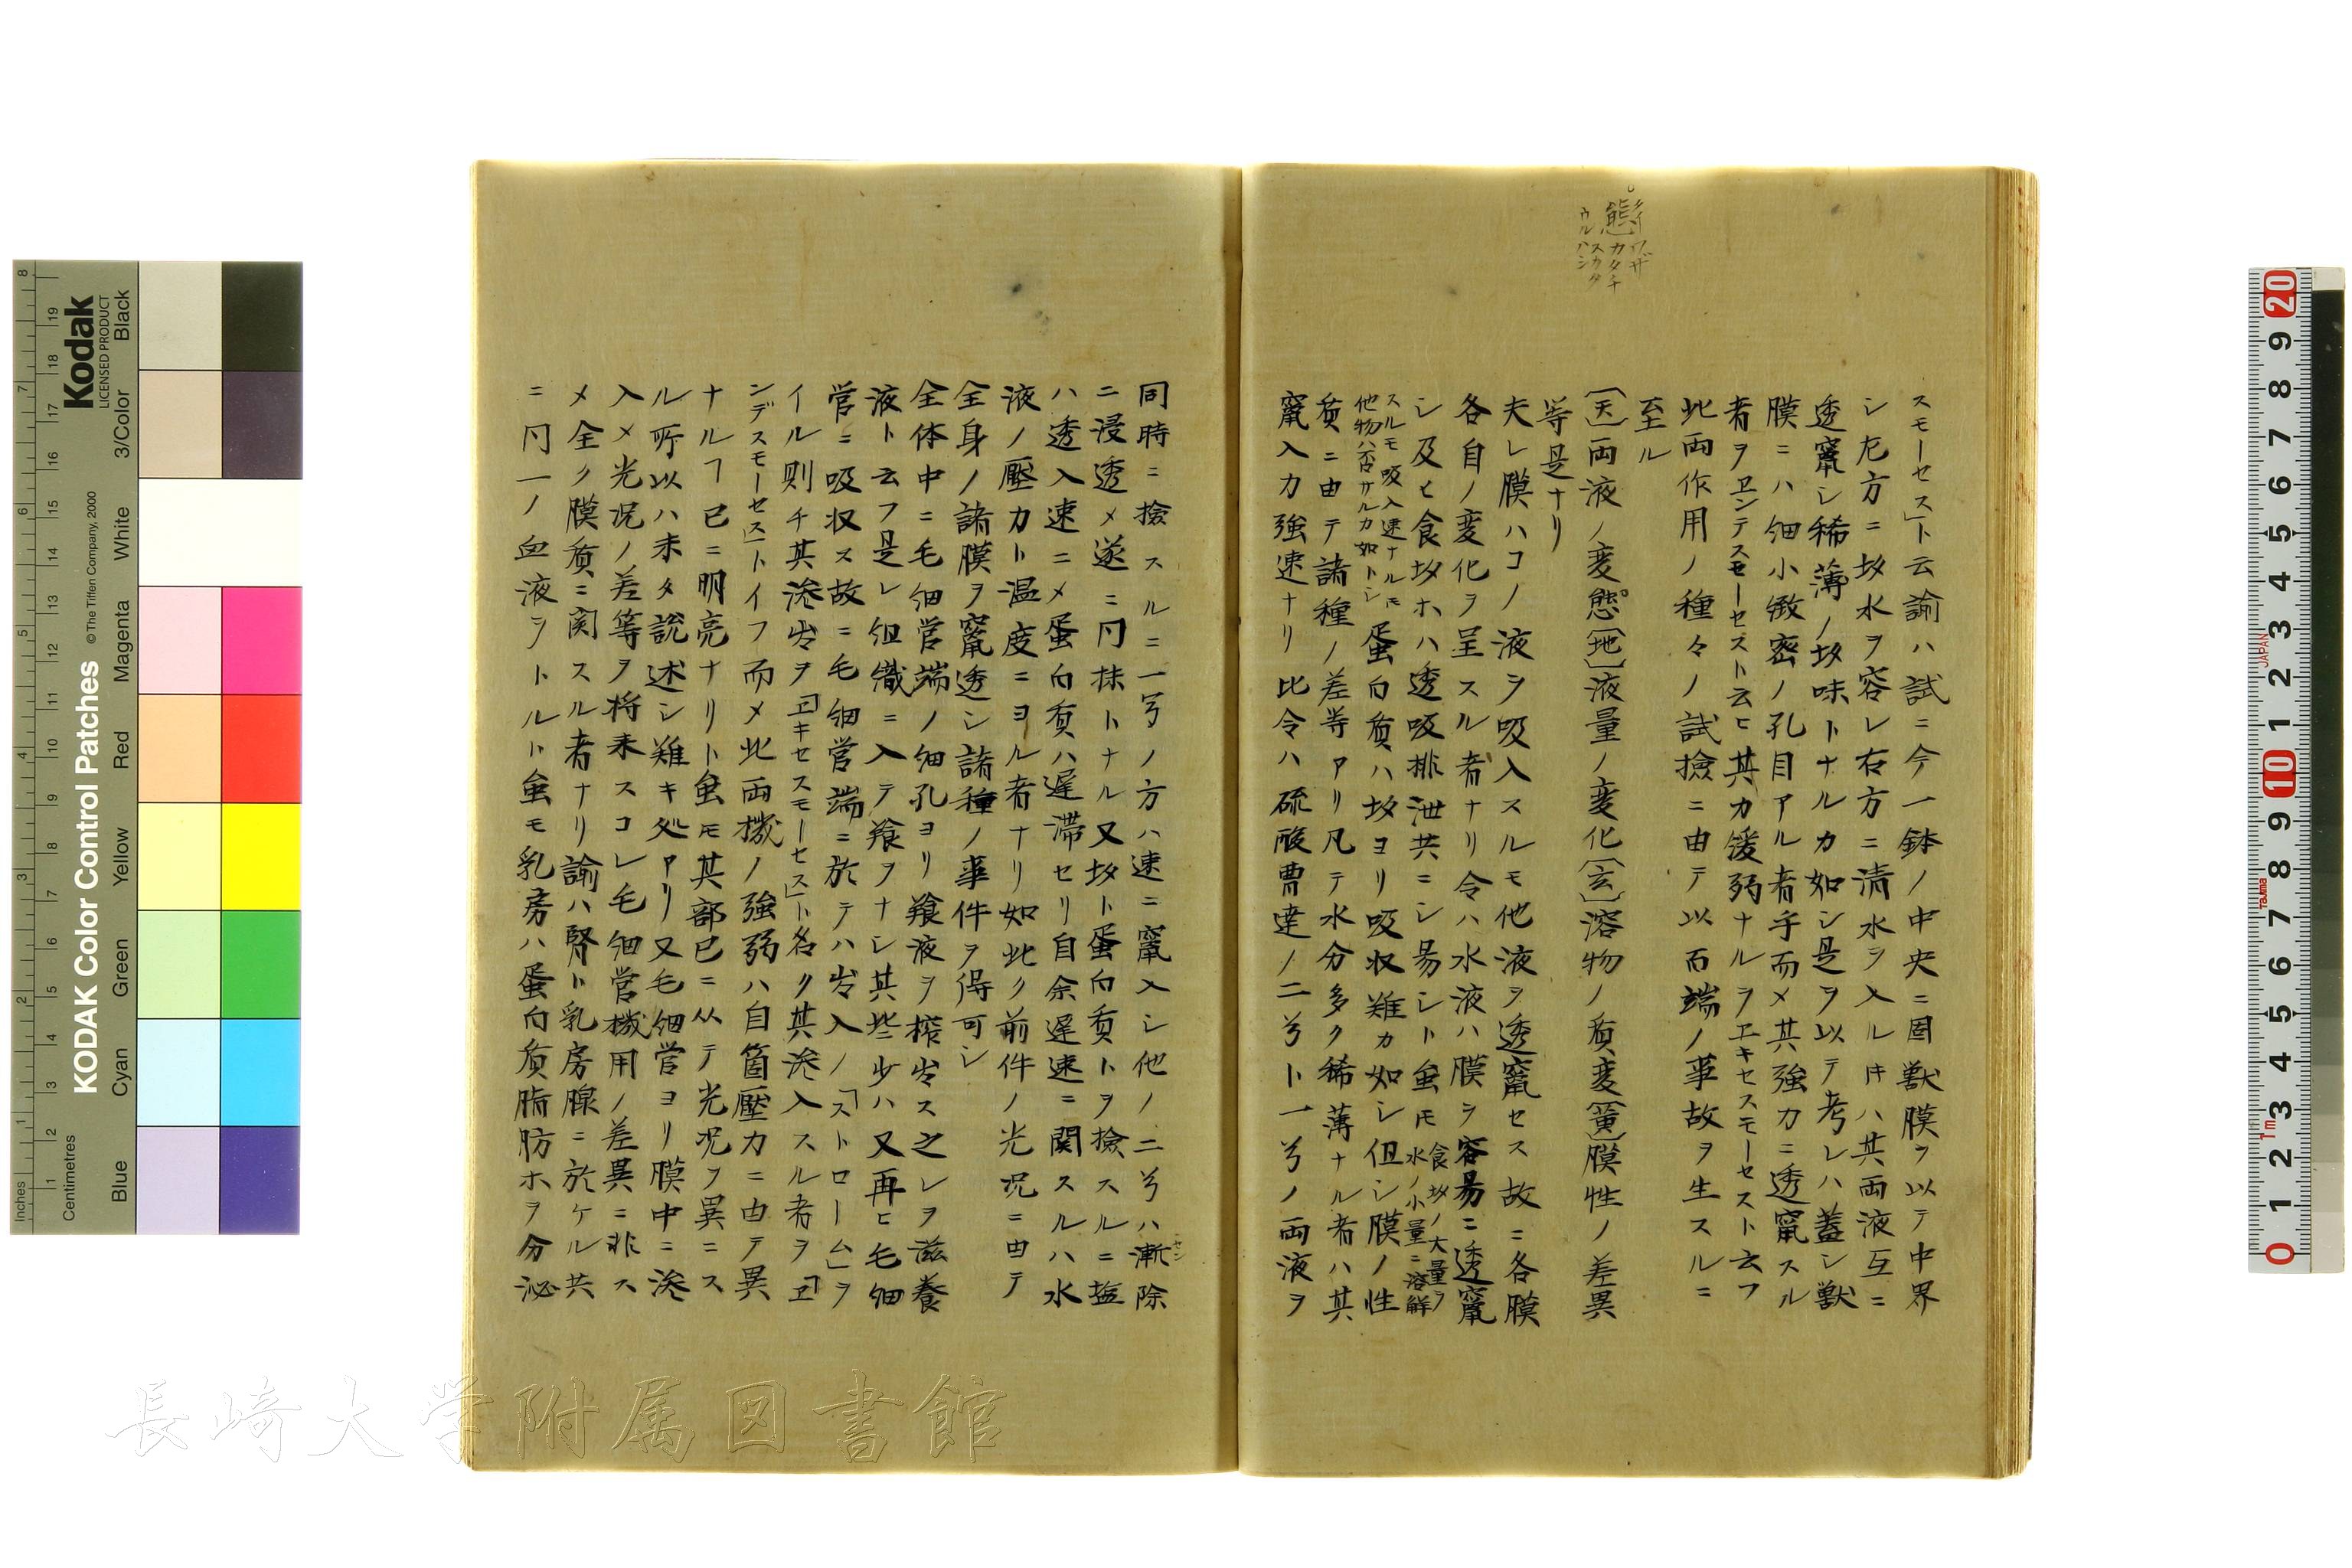 態
ワザ
カタチ
スカタ
ウルハシ
スモーセス」ト云諭ハ試ニ今一鉢ノ中央ニ固獣膜ヲ以テ中界
シ左方ニ塩水ヲ容レ右方ニ清水ヲ入ルキハ其両液互ニ
透竄シ稀薄ノ塩味トナルカ如シ是ヲ以テ考レハ蓋シ獣
膜ニハ細小緻密ノ孔目アル者乎而メ其強力ニ透竄スル
者ヲヱンデスモーセスト云ヒ其力緩弱ナルヲヱキセスモーセスト云フ
此両作用ノ種々ノ試撿ニ由テ以而端ノ事故ヲ生スルニ
至ル
〔天〕両液ノ変態〔地〕液量ノ変化〔玄〕溶物ノ質変〔黄〕膜性ノ差異
等是ナリ
夫レ膜ハコノ液ヲ吸入スルモ他液ヲ透竄セス故ニ各膜
各自ノ変化ヲ呈スル者ナリ令ハ水液ハ膜ヲ容易ニ透竄
シ及ヒ食塩ホハ透吸排泄共ニシ易シト虽モ食塩ノ大量ヲ水ノ小量ニ溶解
スルモ吸入速ナルモ他物ハ否サルカ如トシ蛋白質ハ塩ヨリ吸収難カ如シ但シ膜ノ性
質ニ由テ諸種ノ差等アリ凡テ水分多ク稀薄ナル者ハ其
竄入力強速ナリ比令ハ硫酸曹達ノ二号ト一号ノ両液ヲ
同時ニ撿スルニ一号ノ方ハ速ニ竄入シ他ノ二号ハ漸除
セン
ニ浸透メ遂ニ同抹トナル又塩ト蛋白質トヲ撿スルニ塩
ハ透入速ニメ蛋白質ハ遅滞セリ自余遅速ニ関スルハ水
液ノ壓力ト温度ニヨル者ナリ如此ク前件ノ光况ニ由テ
全身ノ諸膜ヲ竄透シ諸種ノ事件ヲ得可シ
全体中ニ毛細管端ノ細孔ヨリ飱液ヲ榨出ス之レヲ滋養
液ト云フ是レ組織ニ入テ飱ヲナシ其些少ハ又再ヒ毛細
管ニ吸収ス故ニ毛細管端ニ於テハ出入ノ「ストローム」ヲ
イル則チ其滲出ヲ「ヱキセスモーセス」ト名ク其滲入スル者ヲ「ヱ
ンデスモーセス」トイフ而メ此両機ノ強弱ハ自箇壓力ニ由テ異
ナルヿ已ニ明亮ナリト虽モ其部已ニ从テ光况ヲ異ニス
ル所以ハ未タ説述シ難キ処アリ又毛細管ヨリ膜中ニ滲
入メ光况ノ差等ヲ将来スコレ毛細管機用ノ差異ニ非ス
メ全ク膜質ニ関スル者ナリ諭ハ腎ト乳房腺ニ於ケル共
ニ同一ノ血液ヲトルト虽モ乳房ハ蛋白質脂肪ホヲ分泌
長崎大学附属図書館
KODAK Color Control Patches
© The Tiffen Company, 2000
Kodak
LICENSED PRODUCT
Inches
Centimetres
Blue
Cyan
Green
Yellow
Red
Magenta
White
3/Color
Black
JAPAN
TAJIMA